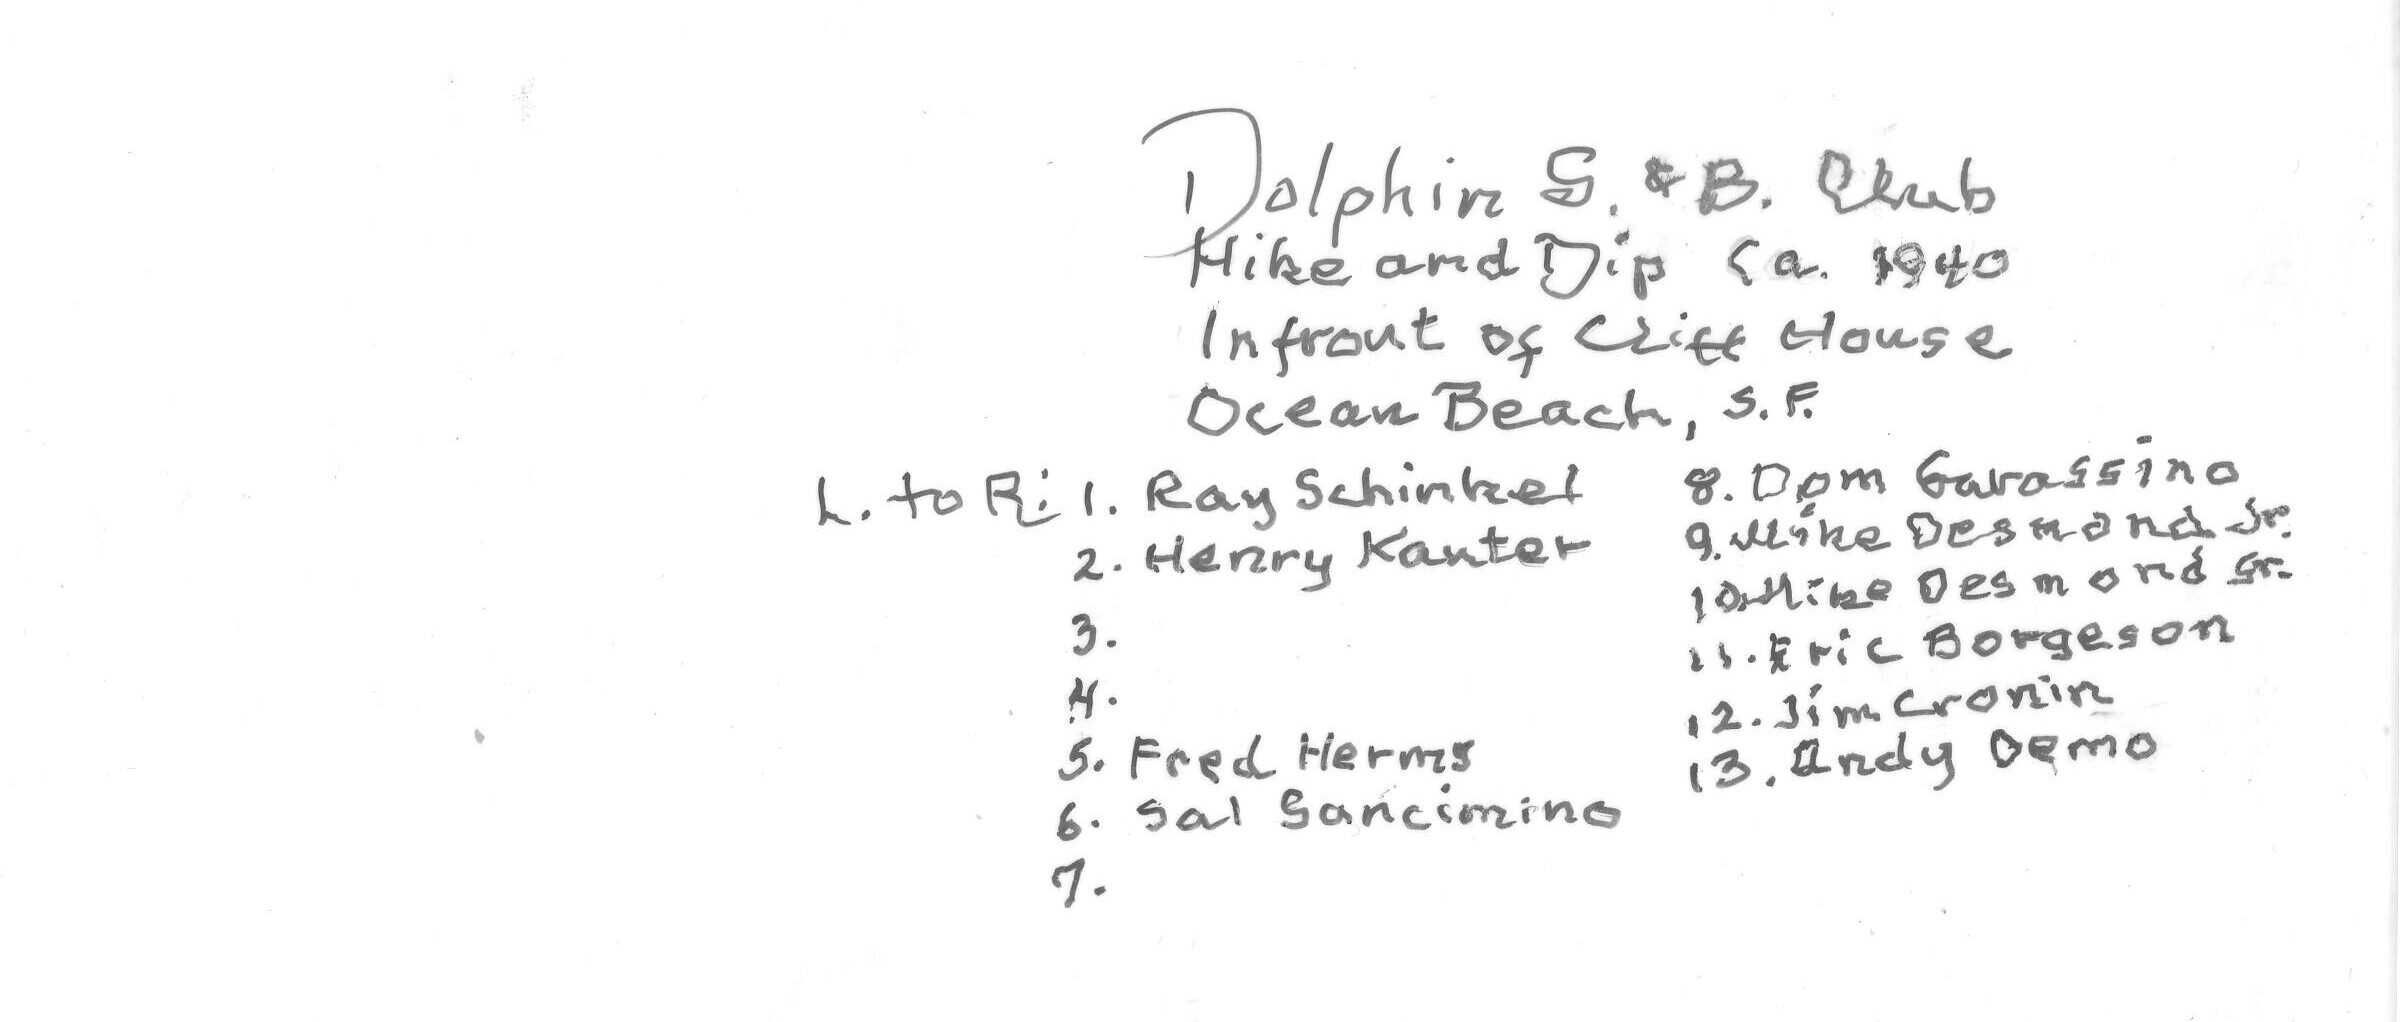 Dolphin S. & B. Club
Hike and Dip Ca. 1940
Infront of Cliff House
Ocean Beach, S.F.
L. to R: 1. Ray Schinkel
2. Henry Kanter
3.
4.
5. Fred Herms
6. Sal Sancimino
7.
8. Dom Garassino
9. Mike Desmond Jr.
10. Mike Desmond Sr.
11. Eric Borgeson
12. Jim Cronin
13. Andy Demo